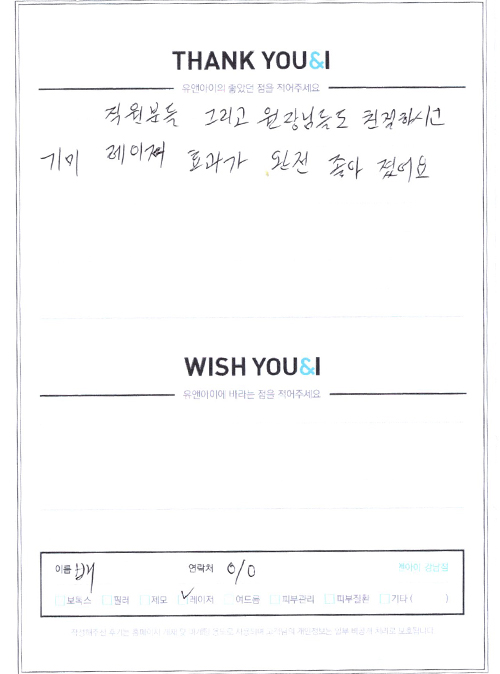 THANK YOU&I
유앤아이의 좋았던 점을 적어주세요
직원분들 그리고 원장님들도 친절하시고
기미 레이져 효과가 완전 좋아 졌어요
WISH YOU&I
유앤아이에 바라는 점을 적어주세요
이름 배 연락처 010
보톡스 필러 제모 ✓레이저 여드름 피부관리 피부질환 기타 ( )